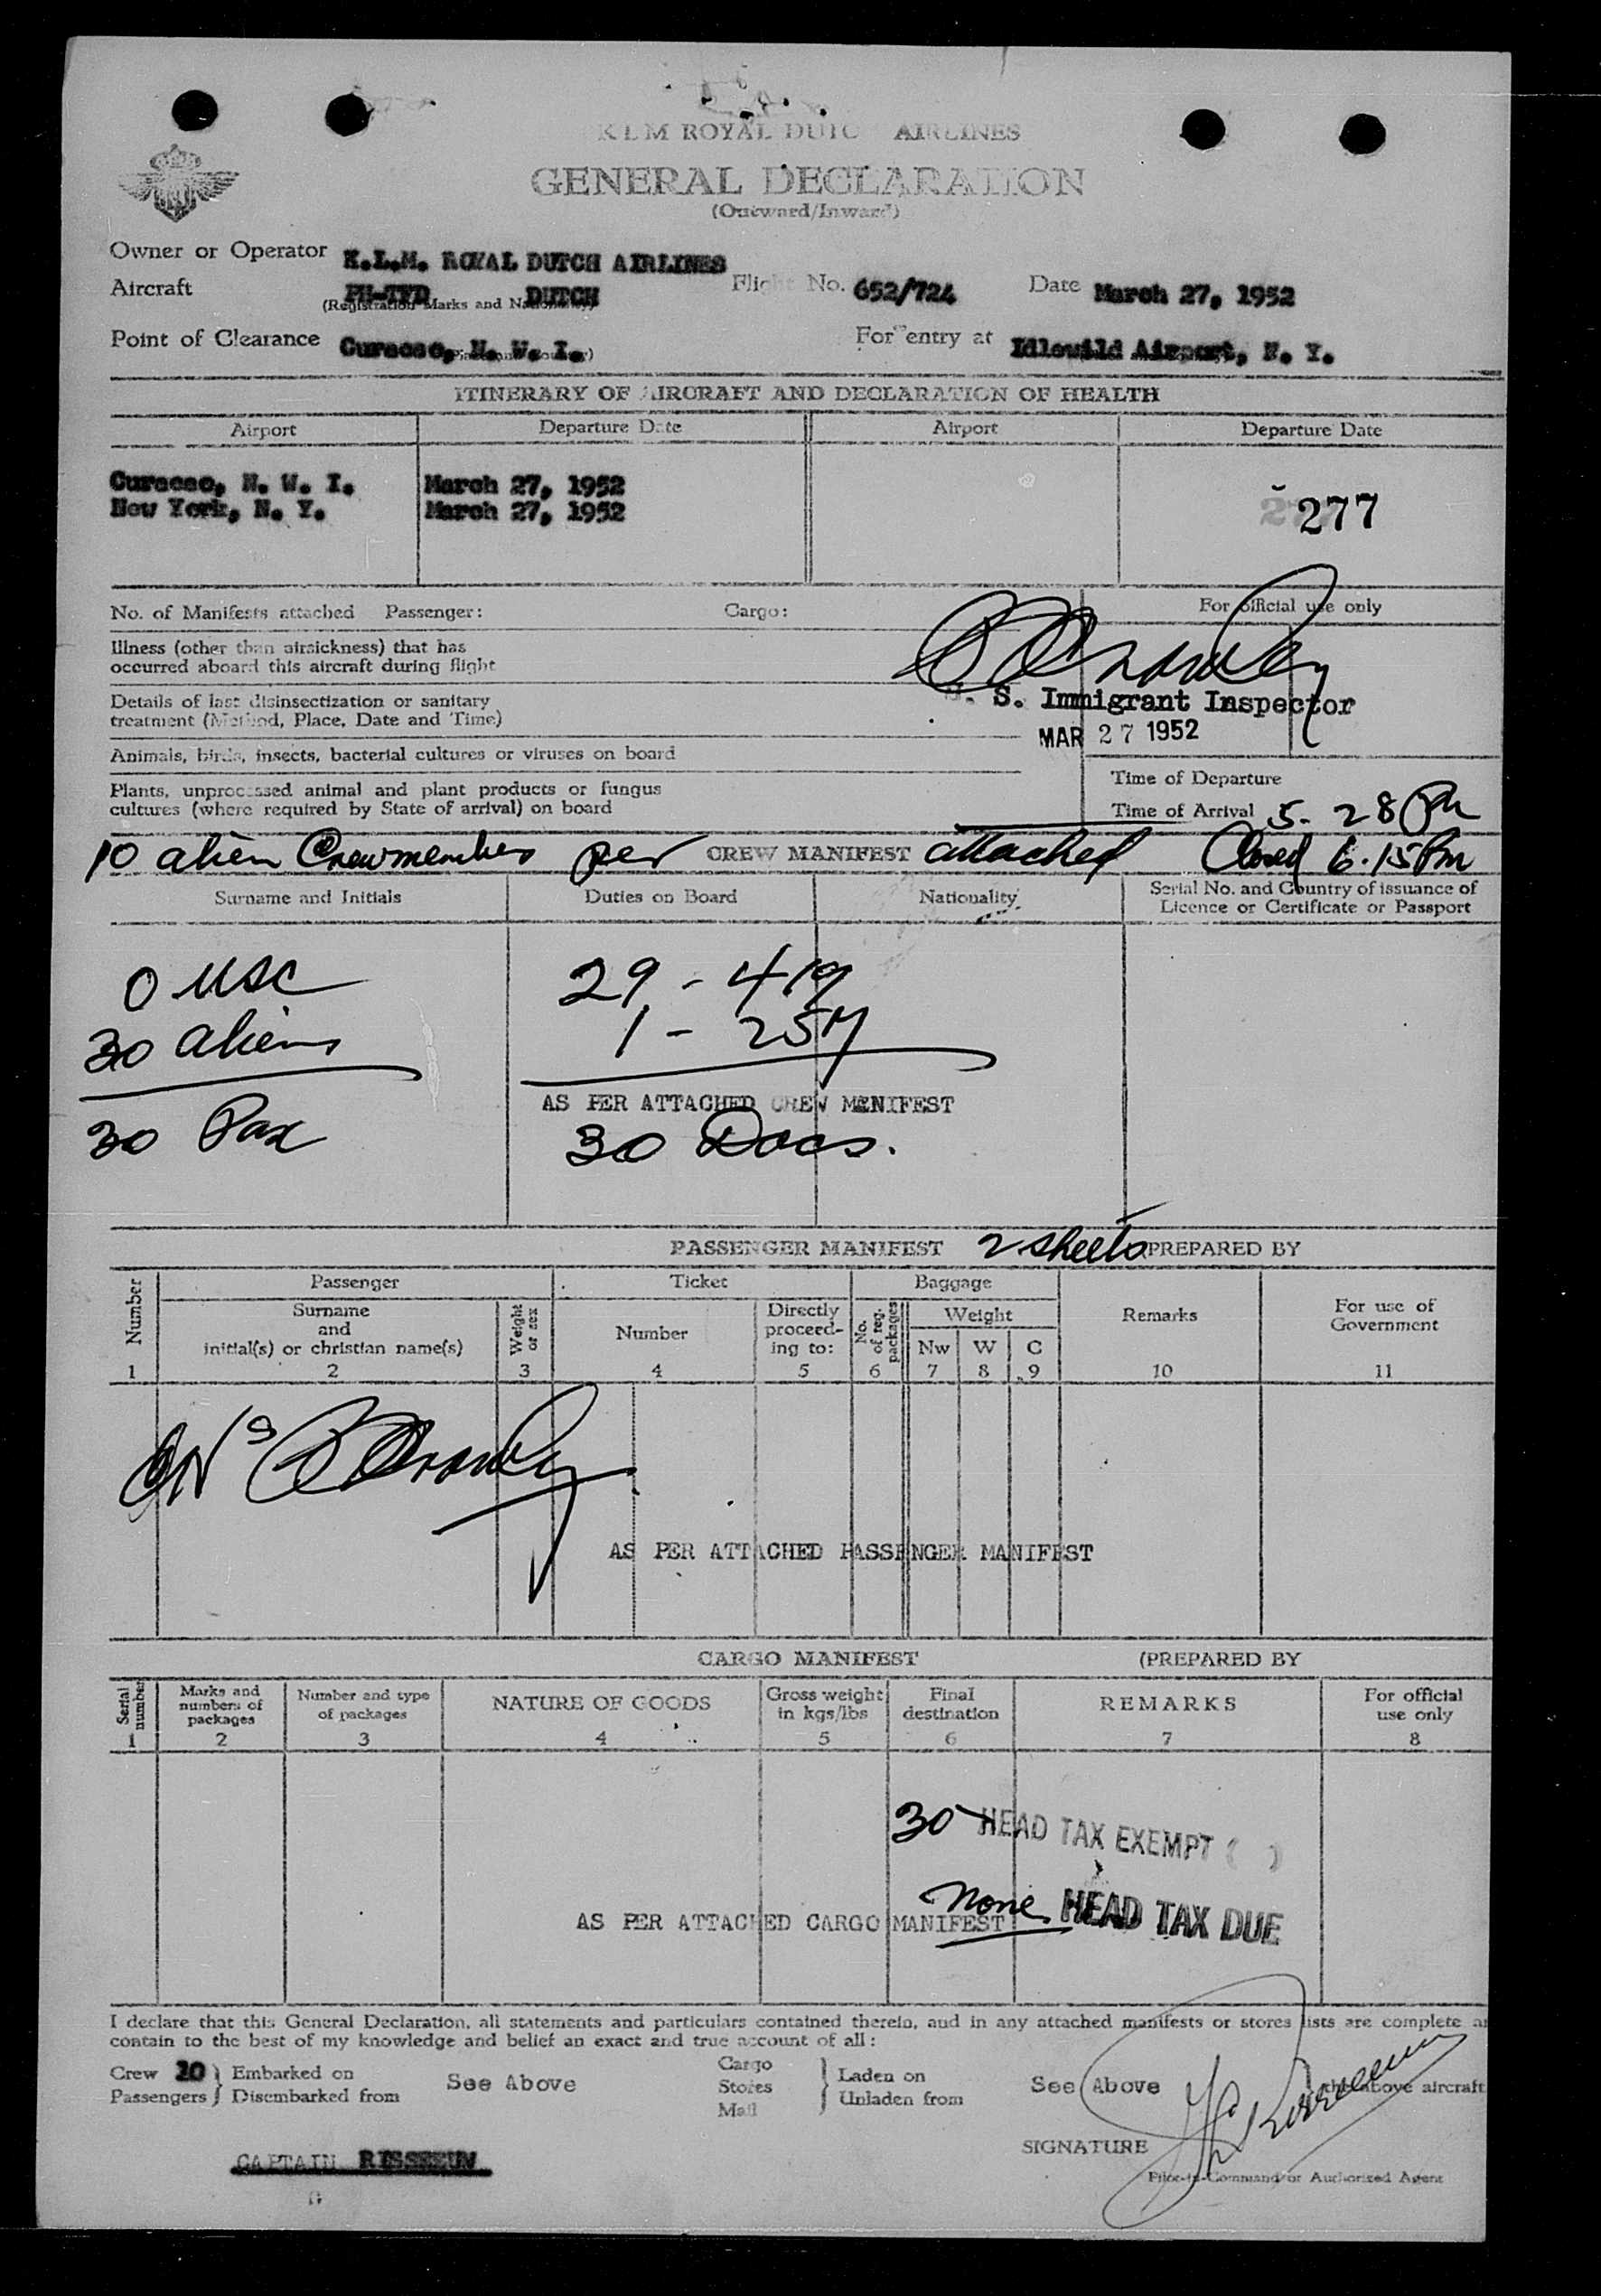 KLM ROYAL DUTC AIRLINES
GENERAL DECLARATION
(Outward/Inward)
Owner or Operator K.L.M. ROYAL DUTCH AIRLINES
Aircraft PH-TFD DUTCH Flight No. 652/724 Date March 27, 1952
(Registration Marks and Nationality)
Point of Clearance Curacao, N. W. I. For entry at Idlewild Airport, N. Y.
ITINERARY OF AIRCRAFT AND DECLARATION OF HEALTH
Airport Departure Date Airport Departure Date
Curacao, N. W. I. March 27, 1952
New York, N. Y. March 27, 1952
277
No. of Manifests attached Passenger: Cargo: For official use only
Illness (other than airsickness) that has
occurred aboard this aircraft during flight
Details of last disinsectization or sanitary
treatment (Method, Place, Date and Time)
. S. Immigrant Inspector
MAR 27 1952
Animals, birds, insects, bacterial cultures or viruses on board
Plants, unprocessed animal and plant products or fungus
cultures (where required by State of arrival) on board
Time of Departure
Time of Arrival 5.28 Pm
10 alien Crewmembers per CREW MANIFEST attached Closed 6.15 Pm
Surname and Initials Duties on Board Nationality Serial No. and Country of issuance of
Licence or Certificate or Passport
0 USC 29 - 419
30 aliens 1 - 257
AS PER ATTACHED CREW MANIFEST
30 Pax 30 Docs.
PASSENGER MANIFEST 2 sheets PREPARED BY
Number Passenger Ticket Baggage Remarks For use of Government
Surname
and
initial(s) or christian name(s)
Weight or sex
Number
Directly proceed-ing to:
No. of reg. packages
Weight
Nw W C
1 2 3 4 5 6 7 8 9 10 11
AS PER ATTACHED PASSENGER MANIFEST
CARGO MANIFEST (PREPARED BY
Serial number
Marks and numbers of packages
Number and type of packages
NATURE OF GOODS
Gross weight in kgs/lbs
Final destination
REMARKS
For official use only
1 2 3 4 5 6 7 8
30 HEAD TAX EXEMPT ( )
None HEAD TAX DUE
AS PER ATTACHED CARGO MANIFEST
I declare that this General Declaration, all statements and particulars contained therein, and in any attached manifests or stores lists are complete a
contain to the best of my knowledge and belief an exact and true account of all:
Crew 10 Embarked on
Passengers Disembarked from
See Above
Cargo
Stores
Mail
Laden on
Unladen from
See Above
the above aircraft
CAPTAIN RISSEEUW
SIGNATURE
Pilot-in-Command or Authorized Agent